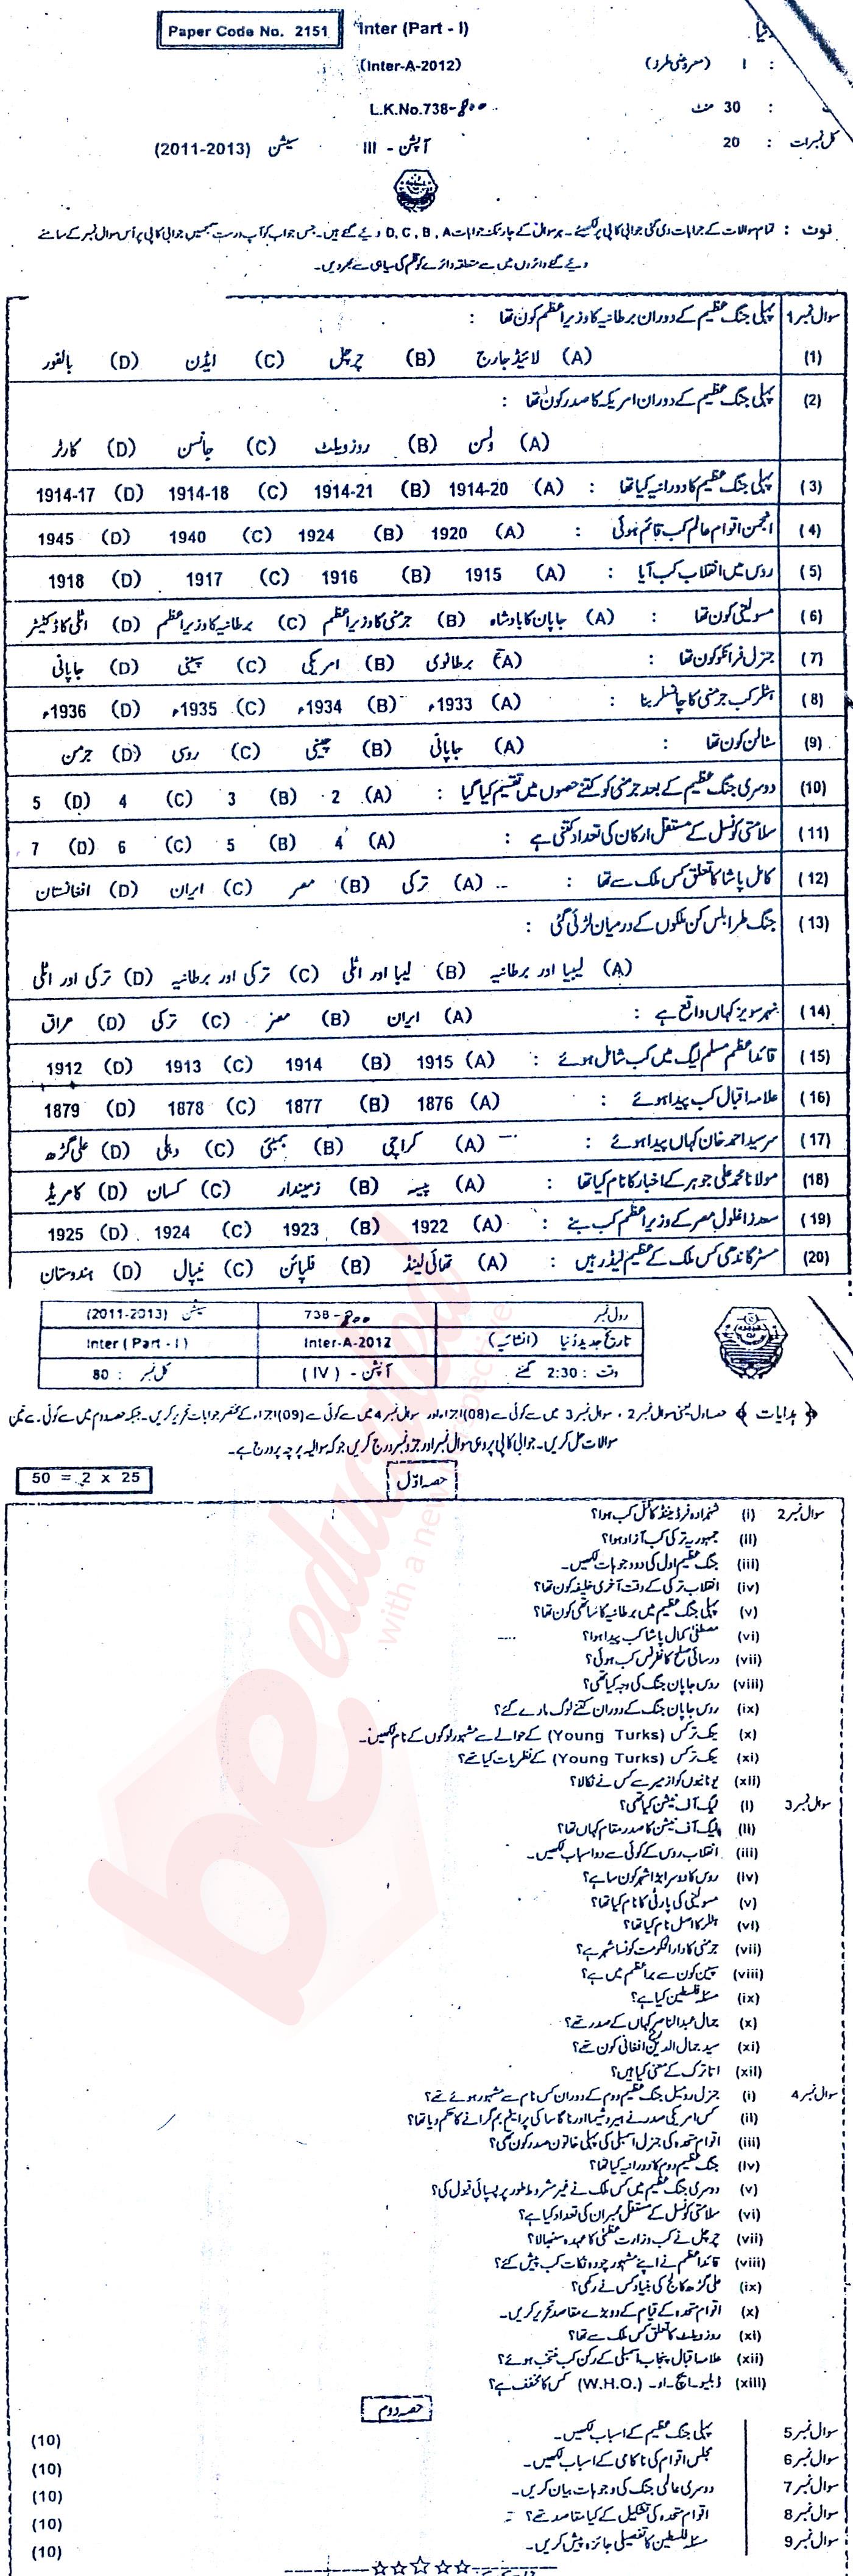 Paper Code No. 2151 Inter (Part - I)
(Inter-A-2012) : I (معروضی طرز)
L.K.No.738-800 : 30 منٹ
سیشن (2011-2013) آپشن - III کل نمبرات : 20
نوٹ : تمام سوالات کے جوابات دی گئی جوابی کاپی پر لکھیئے۔ ہر سوال کے چار ممکنہ جوابات D, C, B, A دیئے گئے ہیں۔ جس جواب کو آپ درست سمجھیں جوابی کاپی پر اُس سوال نمبر کے سامنے
دیئے گئے دائروں میں سے متعلقہ دائرے کو قلم کی سیاہی سے بھر دیں۔
سوال نمبر 1 پہلی جنگ عظیم کے دوران برطانیہ کا وزیر اعظم کون تھا :
(1) (A) لائیڈ جارج (B) چرچل (C) ایڈن (D) بالفور
(2) پہلی جنگ عظیم کے دوران امریکہ کا صدر کون تھا :
(A) ولسن (B) روز ویلٹ (C) جانسن (D) کارٹر
(3) پہلی جنگ عظیم کا دورانیہ کیا تھا : (A) 1914-20 (B) 1914-21 (C) 1914-18 (D) 1914-17
(4) انجمن اقوام عالم کب قائم ہوئی : (A) 1920 (B) 1924 (C) 1940 (D) 1945
(5) روس میں انقلاب کب آیا : (A) 1915 (B) 1916 (C) 1917 (D) 1918
(6) مسولینی کون تھا : (A) جاپان کا بادشاہ (B) جرمنی کا وزیر اعظم (C) برطانیہ کا وزیر اعظم (D) اٹلی کا ڈکٹیٹر
(7) جنرل فرانکو کون تھا : (A) برطانوی (B) امریکی (C) سپینی (D) جاپانی
(8) ہٹلر کب جرمنی کا چانسلر بنا : (A) 1933ء (B) 1934ء (C) 1935ء (D) 1936ء
(9) سٹالن کون تھا : (A) جاپانی (B) چینی (C) روسی (D) جرمن
(10) دوسری جنگ عظیم کے بعد جرمنی کو کتنے حصوں میں تقسیم کیا گیا : (A) 2 (B) 3 (C) 4 (D) 5
(11) سلامتی کونسل کے مستقل ارکان کی تعداد کتنی ہے : (A) 4 (B) 5 (C) 6 (D) 7
(12) کامل پاشا کا تعلق کس ملک سے تھا : (A) ترکی (B) مصر (C) ایران (D) افغانستان
(13) جنگ طرابلس کن ملکوں کے درمیان لڑی گئی :
(A) لیبیا اور برطانیہ (B) لیبا اور اٹلی (C) ترکی اور برطانیہ (D) ترکی اور اٹلی
(14) نہر سویز کہاں واقع ہے : (A) ایران (B) مصر (C) ترکی (D) عراق
(15) قائد اعظم مسلم لیگ میں کب شامل ہوئے : (A) 1915 (B) 1914 (C) 1913 (D) 1912
(16) علامہ اقبال کب پیدا ہوئے : (A) 1876 (B) 1877 (C) 1878 (D) 1879
(17) سرسید احمد خان کہاں پیدا ہوئے : (A) کراچی (B) بمبئی (C) دہلی (D) علی گڑھ
(18) مولانا محمد علی جوہر کے اخبار کا نام کیا تھا : (A) پیسہ (B) زمیندار (C) کسان (D) کامریڈ
(19) سعد زاغلول مصر کے وزیر اعظم کب بنے : (A) 1922 (B) 1923 (C) 1924 (D) 1925
(20) مسٹر گاندھی کس ملک کے عظیم لیڈر ہیں : (A) تھائی لینڈ (B) فلپائن (C) نیپال (D) ہندوستان
رول نمبر 738-800 سیشن (2011-2013)
تاریخ جدید دُنیا (انشائیہ) Inter-A-2012 Inter (Part - I)
وقت : 2:30 گھنٹے آپشن - (IV) کل نمبر : 80
﴿ ہدایات ﴾ حصہ اول یعنی سوال نمبر 2 ، سوال نمبر 3 میں سے کوئی سے (08) اجزاء اور سوال نمبر 4 میں سے کوئی سے (09) اجزاء کے مختصر جوابات تحریر کریں۔ جبکہ حصہ دوم میں سے کوئی سے تین
سوالات حل کریں۔ جوابی کاپی پر وہی سوال نمبر اور جزو نمبر درج کریں جو کہ سوالیہ پرچہ پر درج ہے۔
حصہ اوّل 50 = 2 x 25
سوال نمبر 2 (i) شہزادہ فرڈیننڈ کا قتل کب ہوا؟
(ii) جمہوریہ ترکی کب آزاد ہوا؟
(iii) جنگ عظیم اول کی دو وجوہات لکھیں۔
(iv) انقلاب ترکی کے وقت آخری خلیفہ کون تھا؟
(v) پہلی جنگ عظیم میں برطانیہ کا ساتھی کون تھا؟
(vi) مصطفیٰ کمال پاشا کب پیدا ہوا؟
(vii) ورسائی صلح کانفرنس کب ہوئی؟
(viii) روس جاپان جنگ کی وجہ کیا تھی؟
(ix) روس جاپان جنگ کے دوران کتنے لوگ مارے گئے؟
(x) ینگ ترکس (Young Turks) کے حوالے سے مشہور لوگوں کے نام لکھیں۔
(xi) ینگ ترکس (Young Turks) کے نظریات کیا تھے؟
(xii) یونانیوں کو ازمیر سے کس نے نکالا؟
سوال نمبر 3 (i) لیگ آف نیشن کیا تھی؟
(ii) لیگ آف نیشن کا صدر مقام کہاں تھا؟
(iii) انقلاب روس کے کوئی سے دو اسباب لکھیں۔
(iv) روس کا دوسرا بڑا شہر کون سا ہے؟
(v) مسولینی کی پارٹی کا نام کیا تھا؟
(vi) ہٹلر کا اصل نام کیا تھا؟
(vii) جرمنی کا دارالحکومت کونسا شہر ہے؟
(viii) سپین کون سے براعظم میں ہے؟
(ix) مسئلہ فلسطین کیا ہے؟
(x) جمال عبدالناصر کہاں کے صدر تھے؟
(xi) سید جمال الدین افغانی کون تھے؟
(xii) اتاترک کے معنی کیا ہیں؟
سوال نمبر 4 (i) جنرل رومیل جنگ عظیم دوم کے دوران کس نام سے مشہور ہوئے تھے؟
(ii) کس امریکی صدر نے ہیروشیما اور ناگاساکی پر ایٹم بم گرانے کا حکم دیا تھا؟
(iii) اقوام متحدہ کی جنرل اسمبلی کی پہلی خاتون صدر کون تھی؟
(iv) جنگ عظیم دوم کا دورانیہ کیا تھا؟
(v) دوسری جنگ عظیم میں کس ملک نے غیر مشروط طور پر پسپائی قبول کی؟
(vi) سلامتی کونسل کے مستقل ممبران کی تعداد کیا ہے؟
(vii) چرچل نے کب وزارت عظمٰی کا عہدہ سنبھالا؟
(viii) قائد اعظم نے اپنے مشہور چودہ نکات کب پیش کئے؟
(ix) علی گڑھ کالج کی بنیاد کس نے رکھی؟
(x) اقوام متحدہ کے قیام کے دو بڑے مقاصد تحریر کریں۔
(xi) روز ویلٹ کا تعلق کس ملک سے تھا؟
(xii) علامہ اقبال پنجاب اسمبلی کے رکن کب منتخب ہوئے؟
(xiii) ڈبلیو۔ایچ۔او۔ (W.H.O.) کس کا مخفف ہے؟
حصہ دوم
سوال نمبر 5 پہلی جنگ عظیم کے اسباب لکھیں۔ (10)
سوال نمبر 6 مجلس اقوام کی ناکامی کے اسباب لکھیں۔ (10)
سوال نمبر 7 دوسری عالمی جنگ کی وجوہات بیان کریں۔ (10)
سوال نمبر 8 اقوام متحدہ کی تشکیل کے کیا مقاصد تھے؟ (10)
سوال نمبر 9 مسئلہ فلسطین کا تفصیلی جائزہ پیش کریں۔ (10)
be educated
with a new perspective